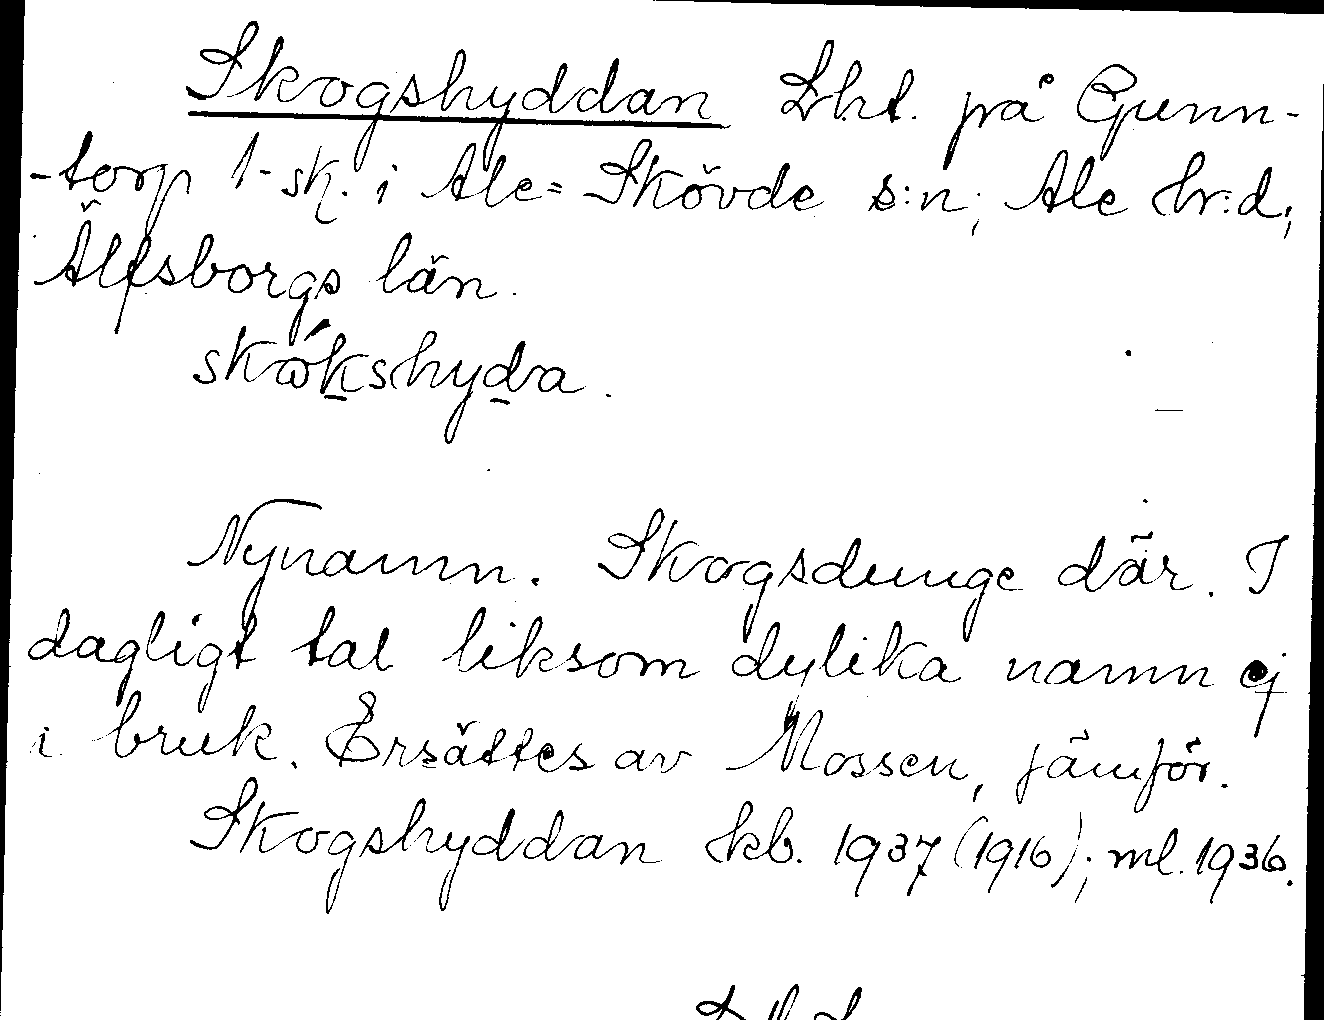 Skogshyddan Lht. på Gunn-
-torp 1-sk. i Ale=Skövde s:n; Ale hr:d;
Älfsborgs län.
skókshyda.
Nynamn. Skogsdunge där. I
dagligt tal liksom dylika namn ej
i bruk. Ersättes av Mossen, jämför.
Skogshyddan kb. 1937 (1916); ml. 1936.